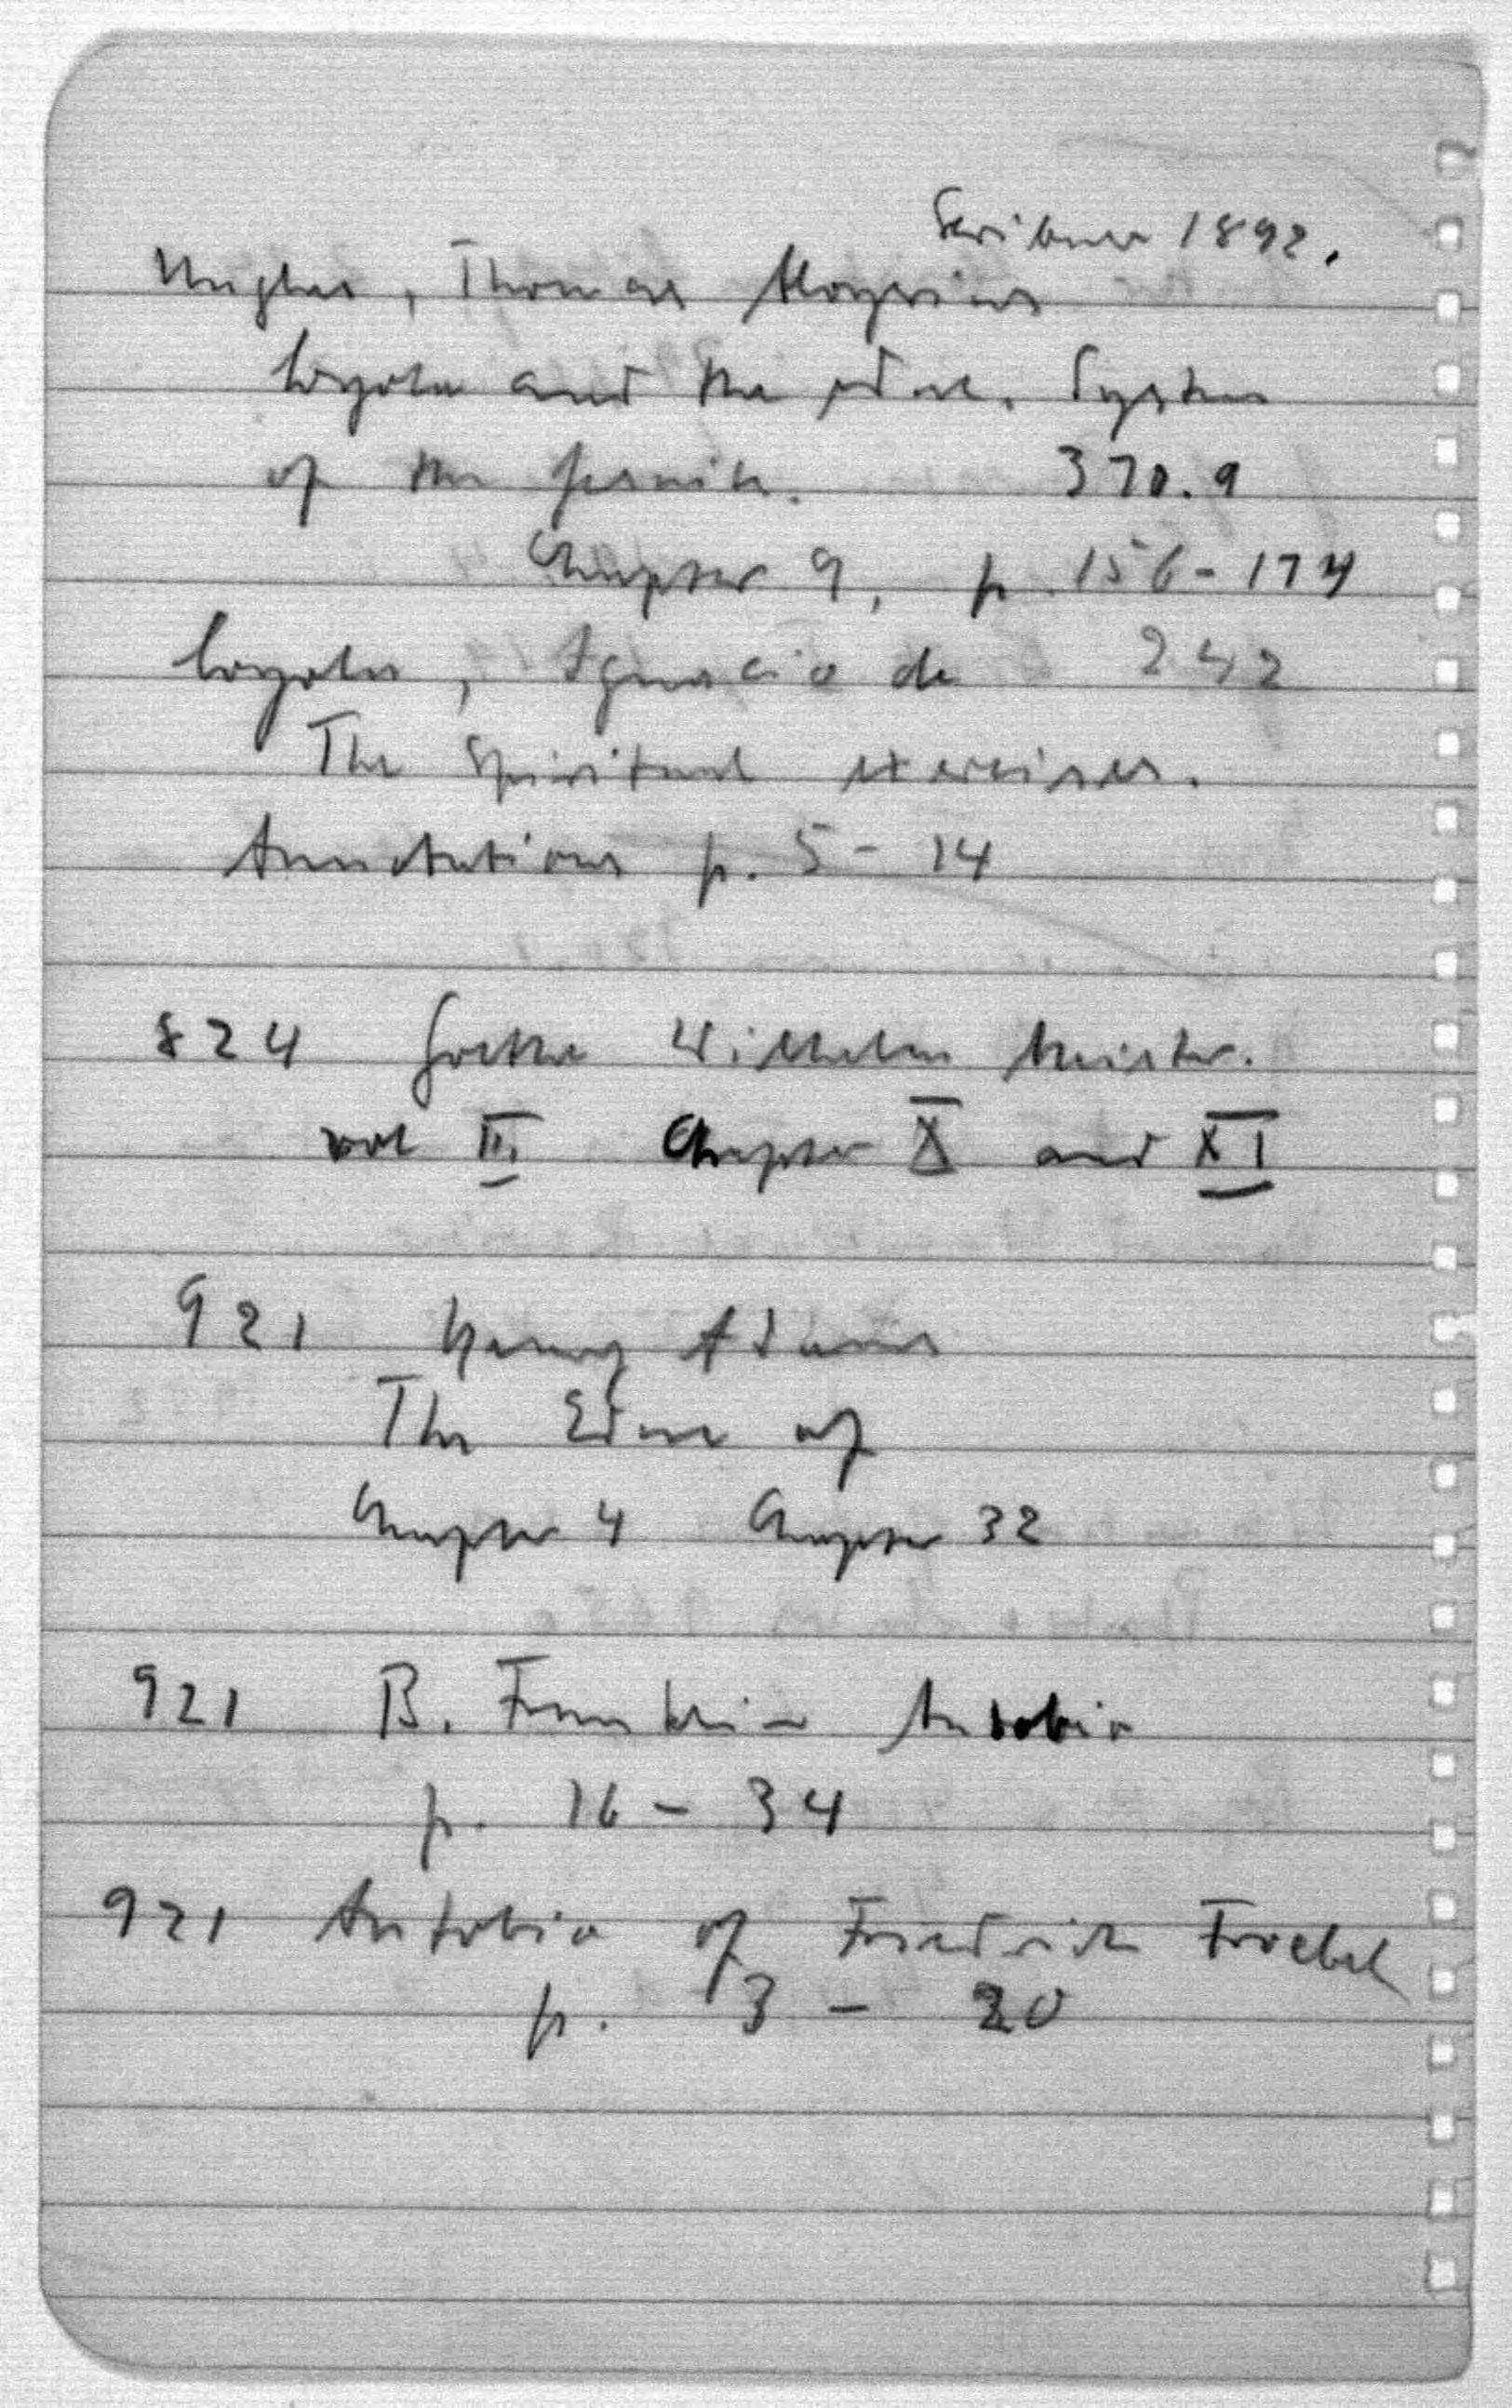 Scribner 1892.
Hughes, Thomas Aloysius
Loyola and the educ. System
of the Jesuits. 370.9
Chapter 9, p. 156-174
Loyola, Ignacio de 242
The Spiritual exercises.
Annotations p. 5-14
824 Goethe Wilhelm Meister.
vol III Chapter X and XI
921 Henry Adams
The Educ of
Chapter 4 Chapter 32
921 B. Franklin Autobio
p. 16-34
921 Autobio of Friedrich Froebel
p. 3-20